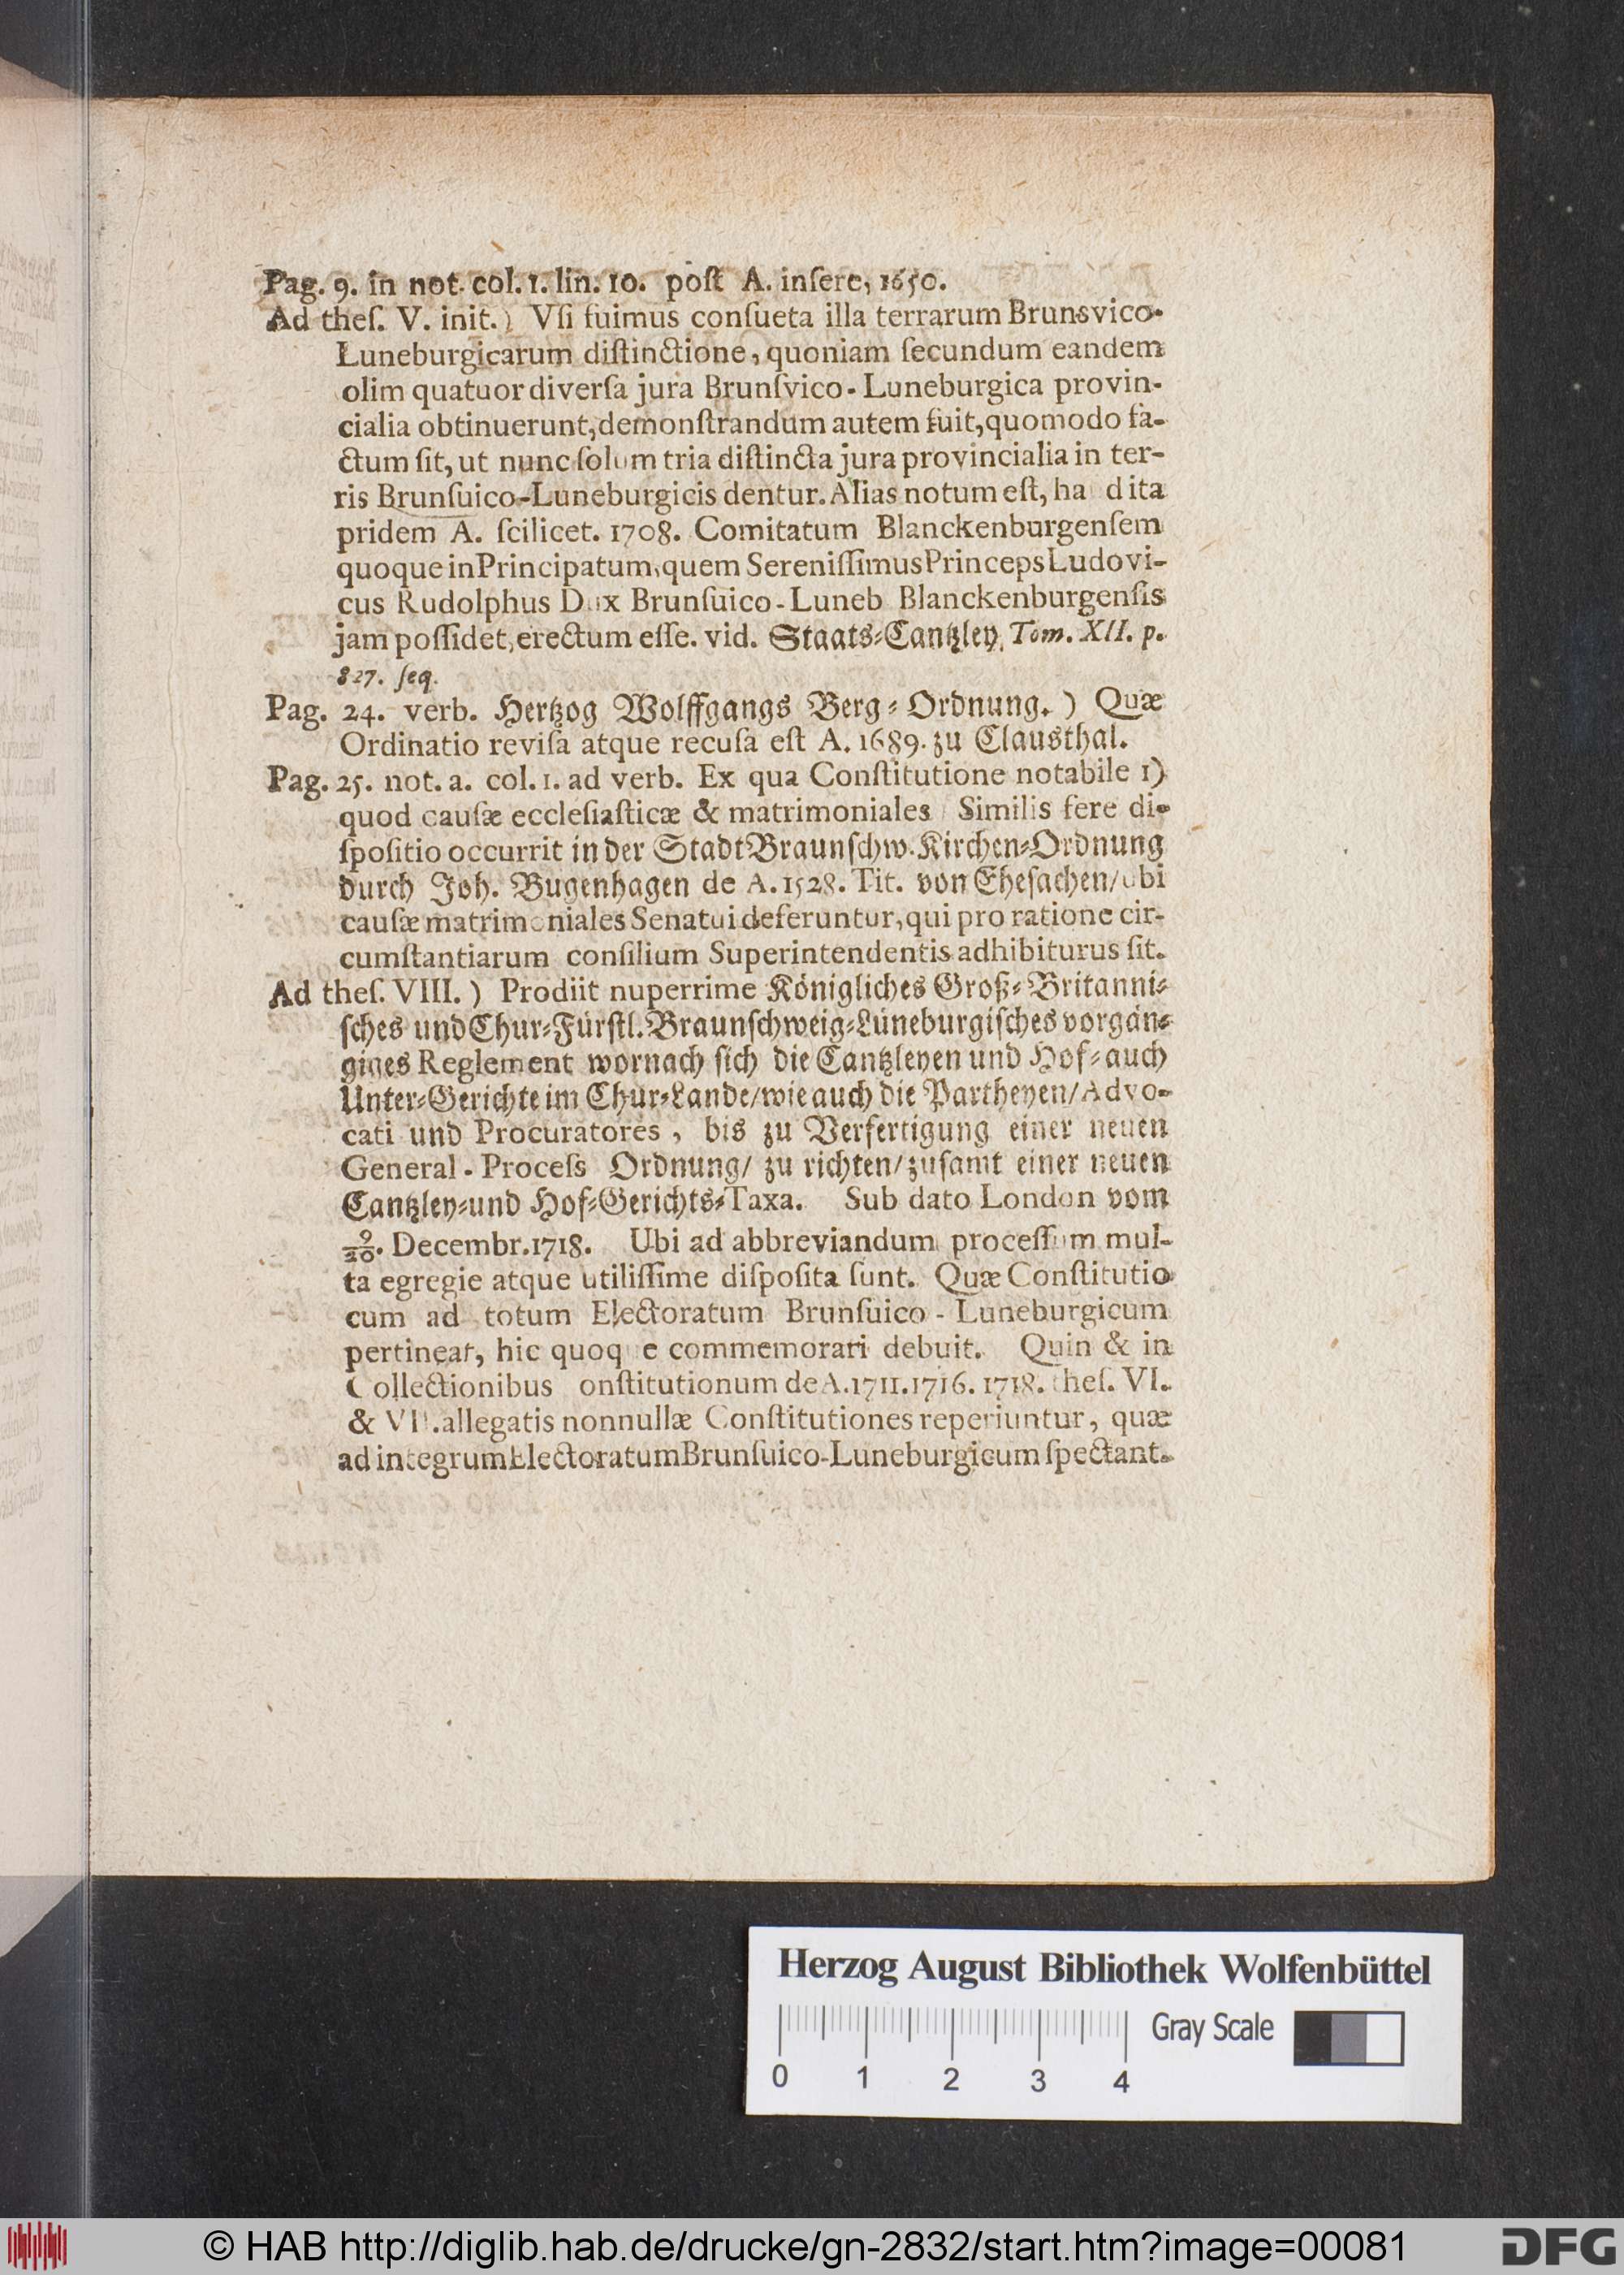 Pag. 9. in not. col. 1. lin. 10. poſt A. inſere, 1650.
Ad theſ. V. init.) Vſi fuimus conſueta illa terrarum Brunsvico-
Luneburgicarum diſtinctione, quoniam ſecundum eandem
olim quatuor diverſa jura Brunſvico-Luneburgica provin-
cialia obtinuerunt, demonſtrandum autem fuit, quomodo fa-
ctum ſit, ut nunc ſolum tria diſtincta jura provincialia in ter-
ris Brunſuico-Luneburgicis dentur. Alias notum eſt, ha d ita
pridem A. ſcilicet. 1708. Comitatum Blanckenburgenſem
quoque in Principatum, quem Sereniſſimus Princeps Ludovi-
cus Rudolphus Dux Brunſuico-Luneb Blanckenburgenſis
jam poſſidet, erectum eſſe. vid. Staats-Cantzley, Tom. XII. p.
827. ſeq.
Pag. 24. verb. Hertzog Wolffgangs Berg-Ordnung.) Quæ
Ordinatio reviſa atque recuſa eſt A. 1689. zu Clausthal.
Pag. 25. not. a. col. 1. ad verb. Ex qua Conſtitutione notabile 1)
quod cauſæ eccleſiaſticæ & matrimoniales Similis fere di-
ſpoſitio occurrit in der Stadt Braunſchw. Kirchen-Ordnung
durch Joh. Bugenhagen de A. 1528. Tit. von Eheſachen/ ubi
cauſæ matrimoniales Senatui deferuntur, qui pro ratione cir-
cumſtantiarum conſilium Superintendentis adhibiturus ſit.
Ad theſ. VIII.) Prodiit nuperrime Königliches Groß-Britanni-
ſches und Chur-Fürſtl. Braunſchweig-Lüneburgiſches vorgän-
giges Reglement wornach ſich die Cantzleyen und Hof- auch
Unter-Gerichte im Chur-Lande/ wie auch die Partheyen/ Advo-
cati und Procuratores, bis zu Verfertigung einer neuen
General-Proceſs Ordnung/ zu richten/ zuſamt einer neuen
Cantzley- und Hof-Gerichts-Taxa. Sub dato London vom
9/20. Decembr. 1718. Ubi ad abbreviandum proceſſum mul-
ta egregie atque utiliſſime diſpoſita ſunt. Quæ Conſtitutio
cum ad totum Electoratum Brunſuico-Luneburgicum
pertineat, hic quoque commemorari debuit. Quin & in
Collectionibus onſtitutionum de A. 1711. 1716. 1718. theſ. VI.
& VII. allegatis nonnullæ Conſtitutiones reperiuntur, quæ
ad integrum Electoratum Brunſuico-Luneburgicum ſpectant.
Herzog August Bibliothek Wolfenbüttel
Gray Scale
0 1 2 3 4
© HAB http://diglib.hab.de/drucke/gn-2832/start.htm?image=00081
DFG